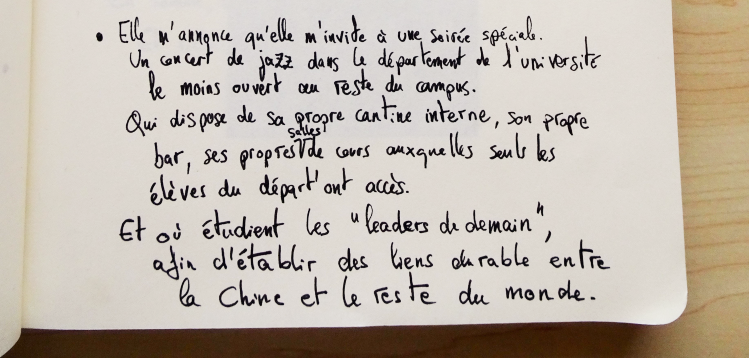 • Elle m'annonce qu'elle m'invite à une soirée spéciale.
Un concert de jazz dans le département de l'université
le moins ouvert au reste du campus.
Qui dispose de sa propre cantine interne, son propre
salles
bar, ses propres de cours auxquelles seuls les
élèves du départ' ont accès.
Et où étudient les "leaders de demain",
afin d'établir des liens durable entre
la Chine et le reste du monde.